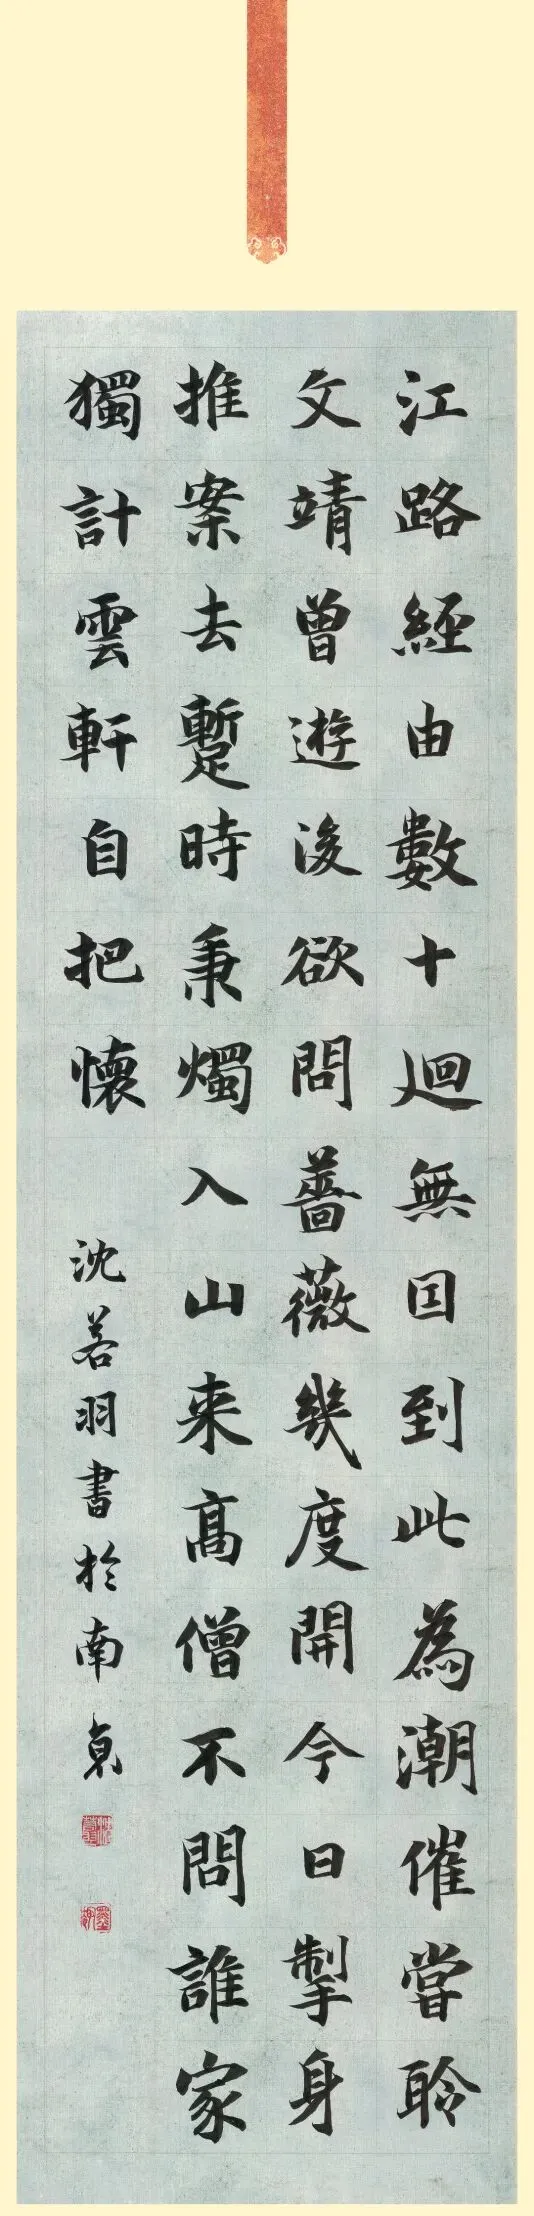 江路經由數十迴無因到此為潮催嘗聆
文靖曾遊後欲問薔薇幾度開今日掣身
推案去蹔時秉燭入山来高僧不問誰家
獨計雲軒自把懷
沈若羽書於南京